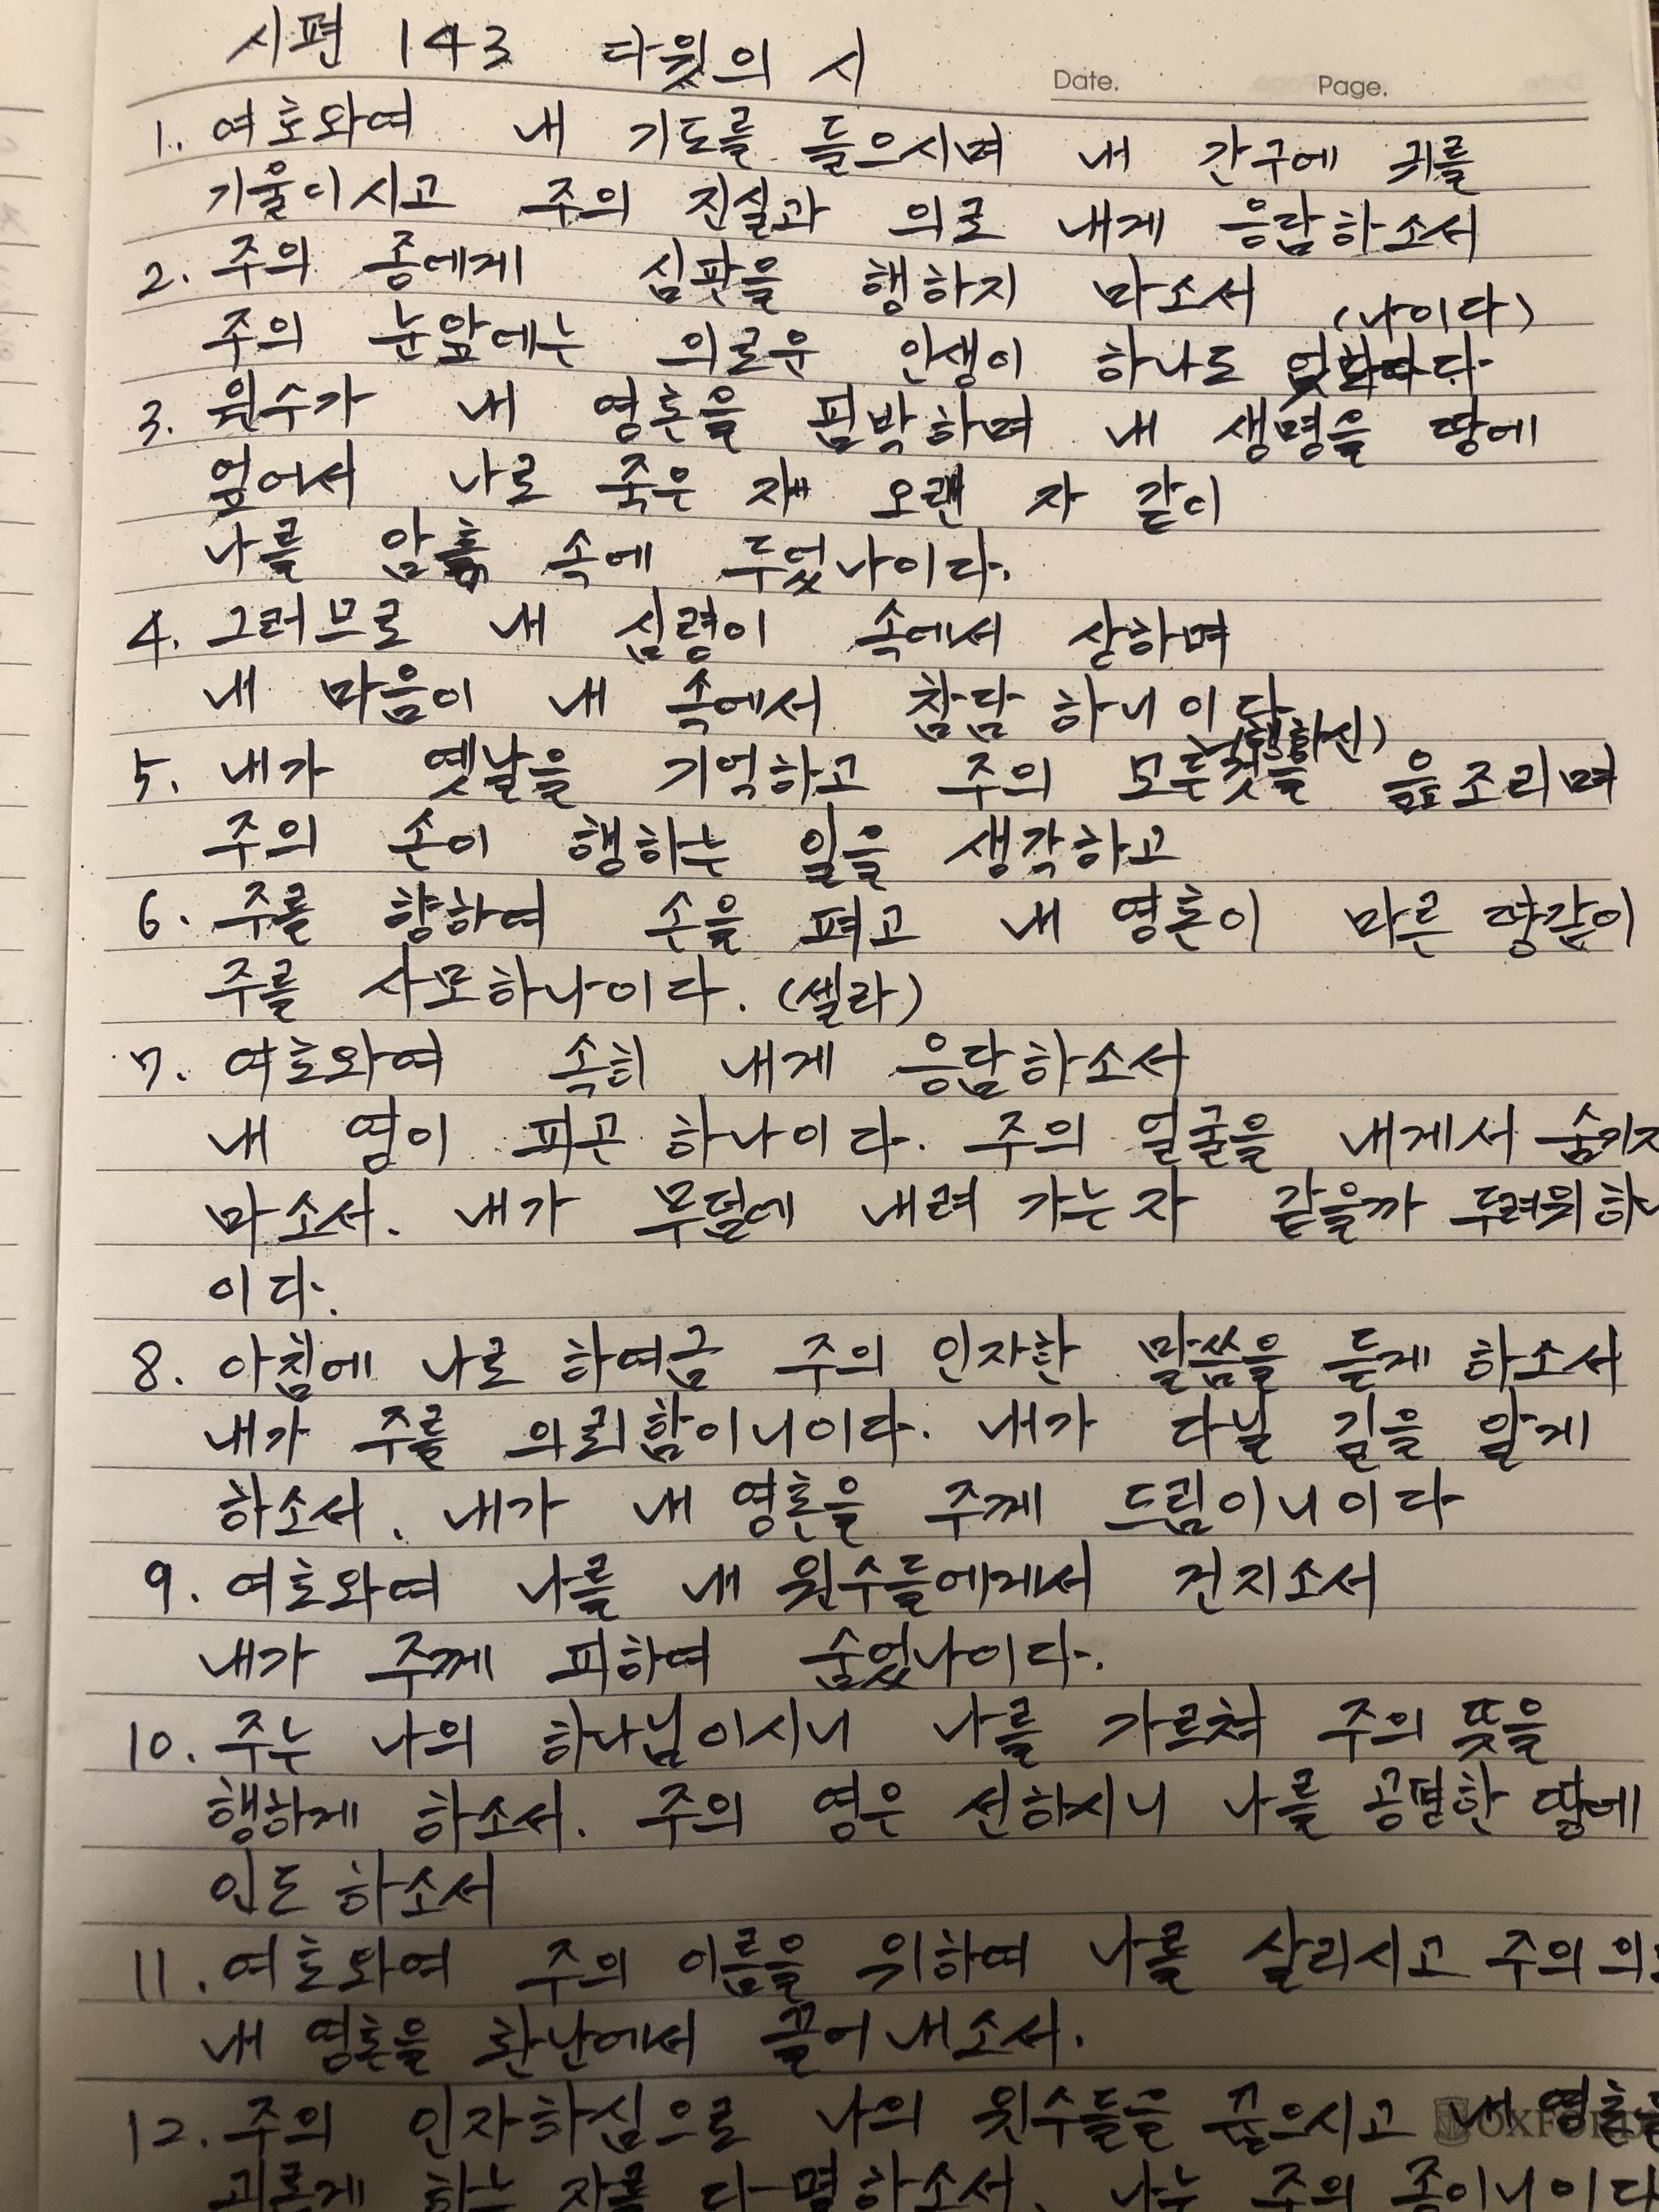 시편 143 다윗의 시
Date. Page.
1. 여호와여 내 기도를 들으시며 내 간구에 귀를
기울이시고 주의 진실과 의로 내게 응답하소서
2. 주의 종에게 심판을 행하지 마소서
(나이다)
주의 눈앞에는 의로운 인생이 하나도
3. 원수가 내 영혼을 핍박하며 내 생명을 땅에
엎어서 나로 죽은 지 오랜 자 같이
나를 암흑 속에 두었나이다.
4. 그러므로 내 심령이 속에서 상하며
내 마음이 내 속에서 참담 하니이다
(행하신)
5. 내가 옛날을 기억하고 주의 모든것을 읊조리며
주의 손이 행하는 일을 생각하고
6. 주를 향하여 손을 펴고 내 영혼이 마른 땅같이
주를 사모하나이다. (셀라)
7. 여호와여 속히 내게 응답하소서
내 영이 피곤 하나이다. 주의 얼굴을 내게서 숨기지
마소서. 내가 무덤에 내려 가는 자 같을까 두려워하나
이다.
8. 아침에 나로 하여금 주의 인자한 말씀을 듣게 하소서
내가 주를 의뢰함이니이다. 내가 다닐 길을 알게
하소서. 내가 내 영혼을 주께 드림이니이다
9. 여호와여 나를 내 원수들에게서 건지소서
내가 주께 피하여 숨었나이다.
10. 주는 나의 하나님이시니 나를 가르쳐 주의 뜻을
행하게 하소서. 주의 영은 선하시니 나를 공평한 땅에
인도 하소서
11. 여호와여 주의 이름을 위하여 나를 살리시고 주의
내 영혼을 환난에서 끌어 내소서.
12. 주의 인자하심으로 나의 원수들을 끊으시고 내 영혼을
OXFORD
괴롭게 하는 자를 다 멸하소서. 나는 주의 종이니이다